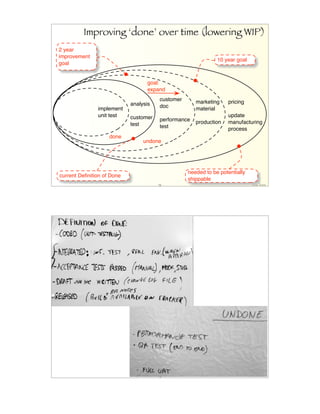 Improving 'done' over time (lowering WIP)
2 year
improvement
goal
10 year goal
goal:
expand
implement
unit test
analysis
customer
test
customer
doc
performance
test
marketing
material
production
pricing
update
manufacturing
process
done
undone
current Definition of Done
needed to be potentially
shippable
DEFINITION OF DONE:
- CODED (UNIT-TESTING)
- INTEGRATED: INT. TEST, REAL ENV
- ACCEPTANCE TEST PASSED (MANUAL)
- DRAFT WRITTEN (CHANGE LOG FILE)
- RELEASED (BUILD AVAILABLE ON
UNDONE
- PERFORMANCE TEST
- QA TEST (END TO END)
- FULL UAT